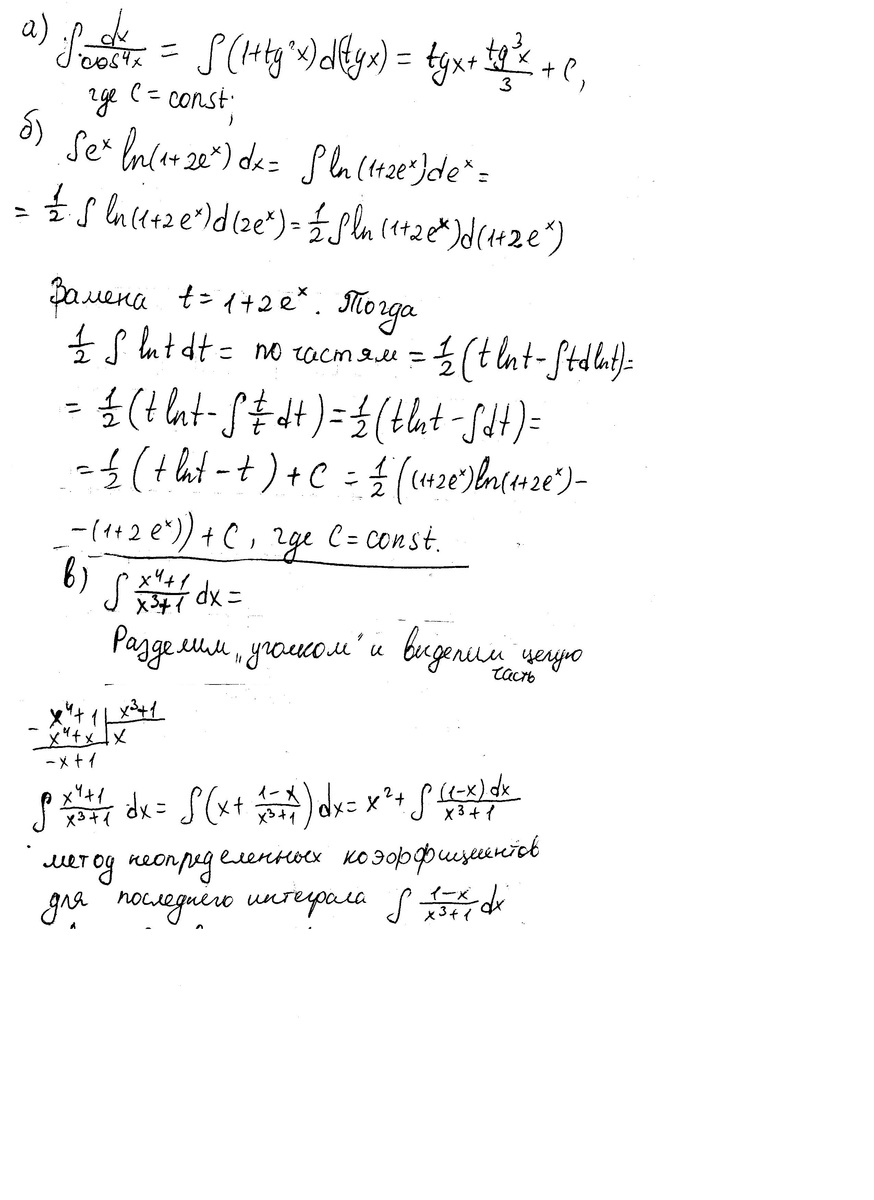 а) ∫ dx/cos⁴x = ∫ (1+tg²x) d(tgx) = tgx + tg³x/3 + C,
где C = const;
б) ∫ eˣ ln(1+2eˣ) dx = ∫ ln(1+2eˣ) deˣ =
= 1/2 ∫ ln(1+2eˣ) d(2eˣ) = 1/2 ∫ ln(1+2eˣ) d(1+2eˣ)
Замена t = 1+2eˣ. Тогда
1/2 ∫ ln t dt = по частям = 1/2 (t ln t - ∫ t d ln t) =
= 1/2 (t ln t - ∫ t/t dt) = 1/2 (t ln t - ∫ dt) =
= 1/2 (t ln t - t) + C = 1/2 ((1+2eˣ) ln(1+2eˣ) -
- (1+2eˣ)) + C, где C = const.
в) ∫ (x⁴+1)/(x³+1) dx =
Разделим „уголком" и выделим целую
часть
- x⁴+1 | x³+1
x⁴+x | x
-x+1
∫ (x⁴+1)/(x³+1) dx = ∫ (x + (1-x)/(x³+1)) dx = x² + ∫ (1-x) dx/(x³+1)
метод неопределенных коэффициентов
для последнего интеграла ∫ (1-x)/(x³+1) dx